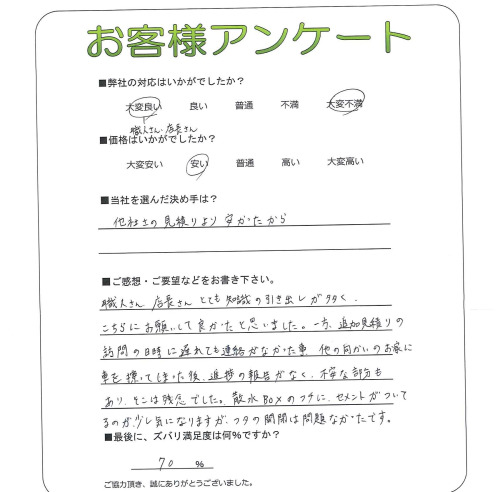 お客様アンケート
■弊社の対応はいかがでしたか？
大変良い 良い 普通 不満 大変不満
職人さん、店長さん
■価格はいかがでしたか？
大変安い 安い 普通 高い 大変高い
■当社を選んだ決め手は？
他社さの見積りより安かったから
■ご感想・ご要望などをお書き下さい。
職人さん 店長さん とても知識の引き出しが多く、
こちらにお願いして良かったと思いました。一方、追加見積りの
訪問の日時に遅れても連絡がなかった事、他の向かいのお家に
車を擦ってしまった後、進捗の報告がなく、不安な部分も
あり、そこは残念でした。散水BOXのフチに、セメントがついて
るのが、少し気になりますが、フタの開閉は問題なかったです。
■最後に、ズバリ満足度は何％ですか？
70 ％
ご協力頂き、誠にありがとうございました。